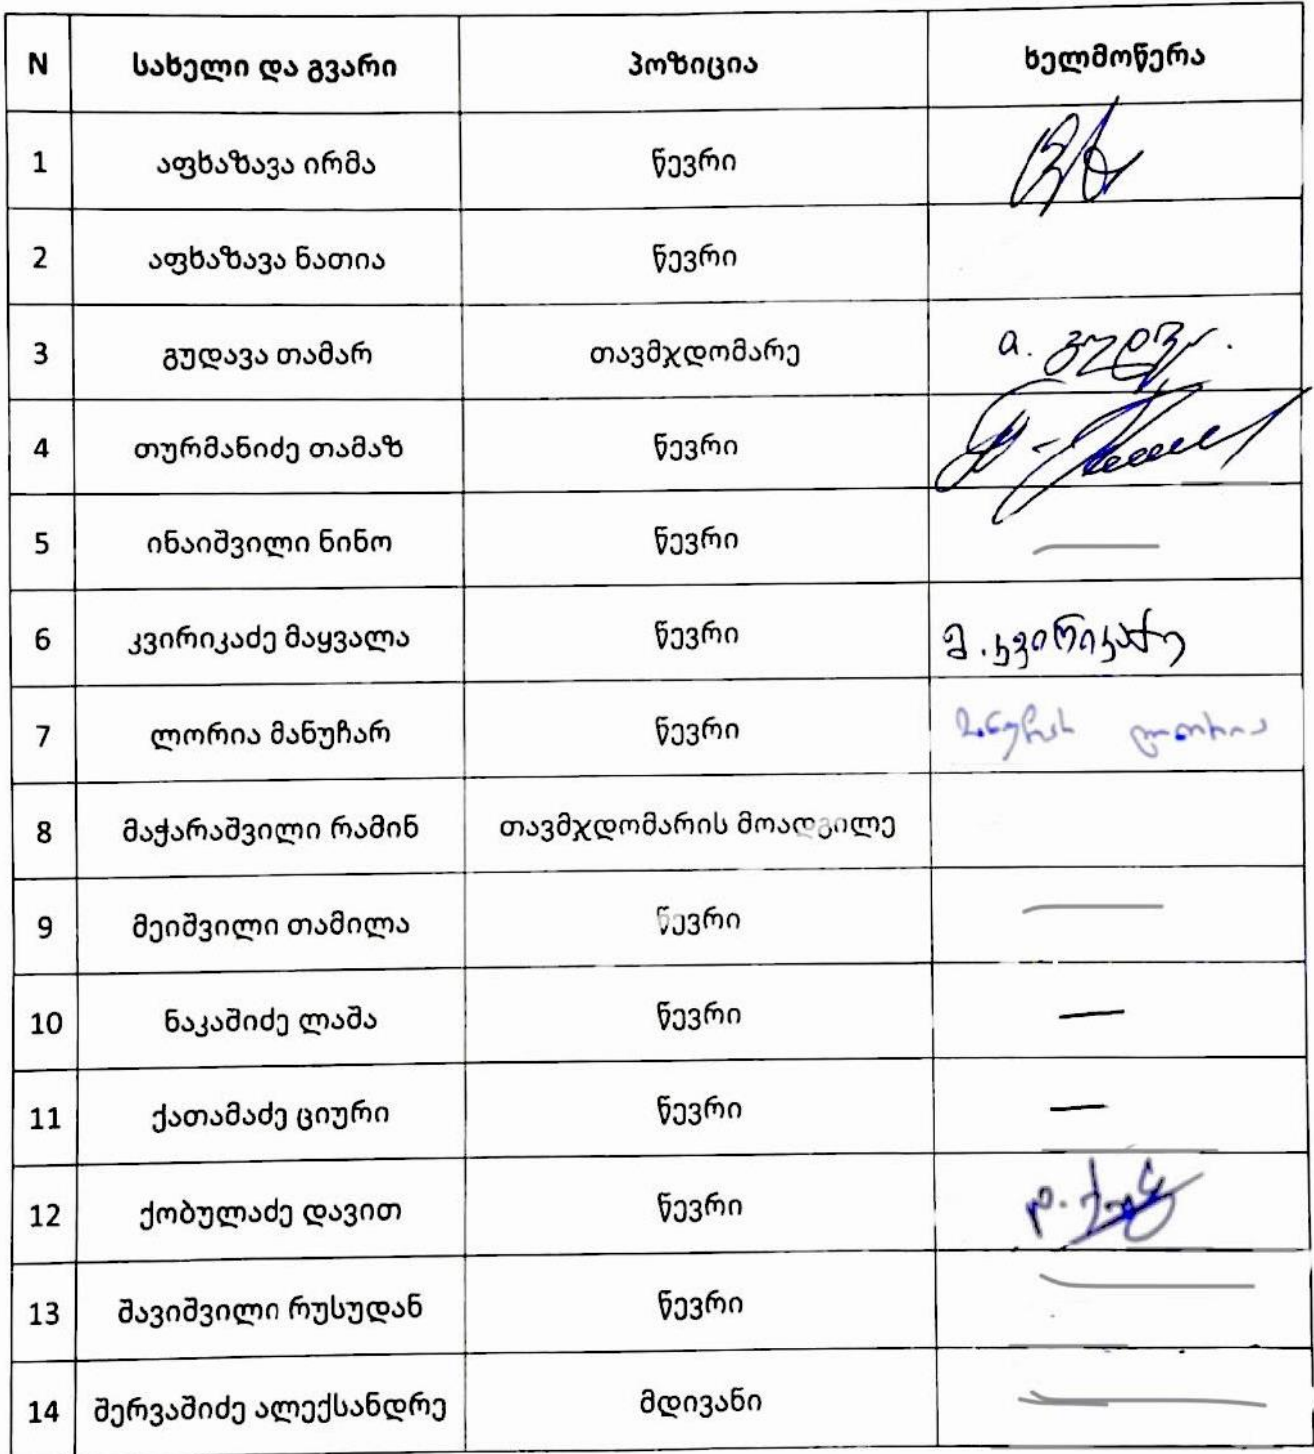 N სახელი და გვარი პოზიცია ხელმოწერა
1 აფხაზავა ირმა წევრი
2 აფხაზავა ნათია წევრი
3 გუდავა თამარ თავმჯდომარე
4 თურმანიძე თამაზ წევრი
5 ინაიშვილი ნინო წევრი —
6 კვირიკაძე მაყვალა წევრი მ. კვირიკაძე
7 ლორია მანუჩარ წევრი მანუჩარ ლორია
8 მაჭარაშვილი რამინ თავმჯდომარის მოადგილე
9 მეიშვილი თამილა წევრი —
10 ნაკაშიძე ლაშა წევრი —
11 ქათამაძე ციური წევრი —
12 ქობულაძე დავით წევრი
13 შავიშვილი რუსუდან წევრი —
14 შერვაშიძე ალექსანდრე მდივანი —